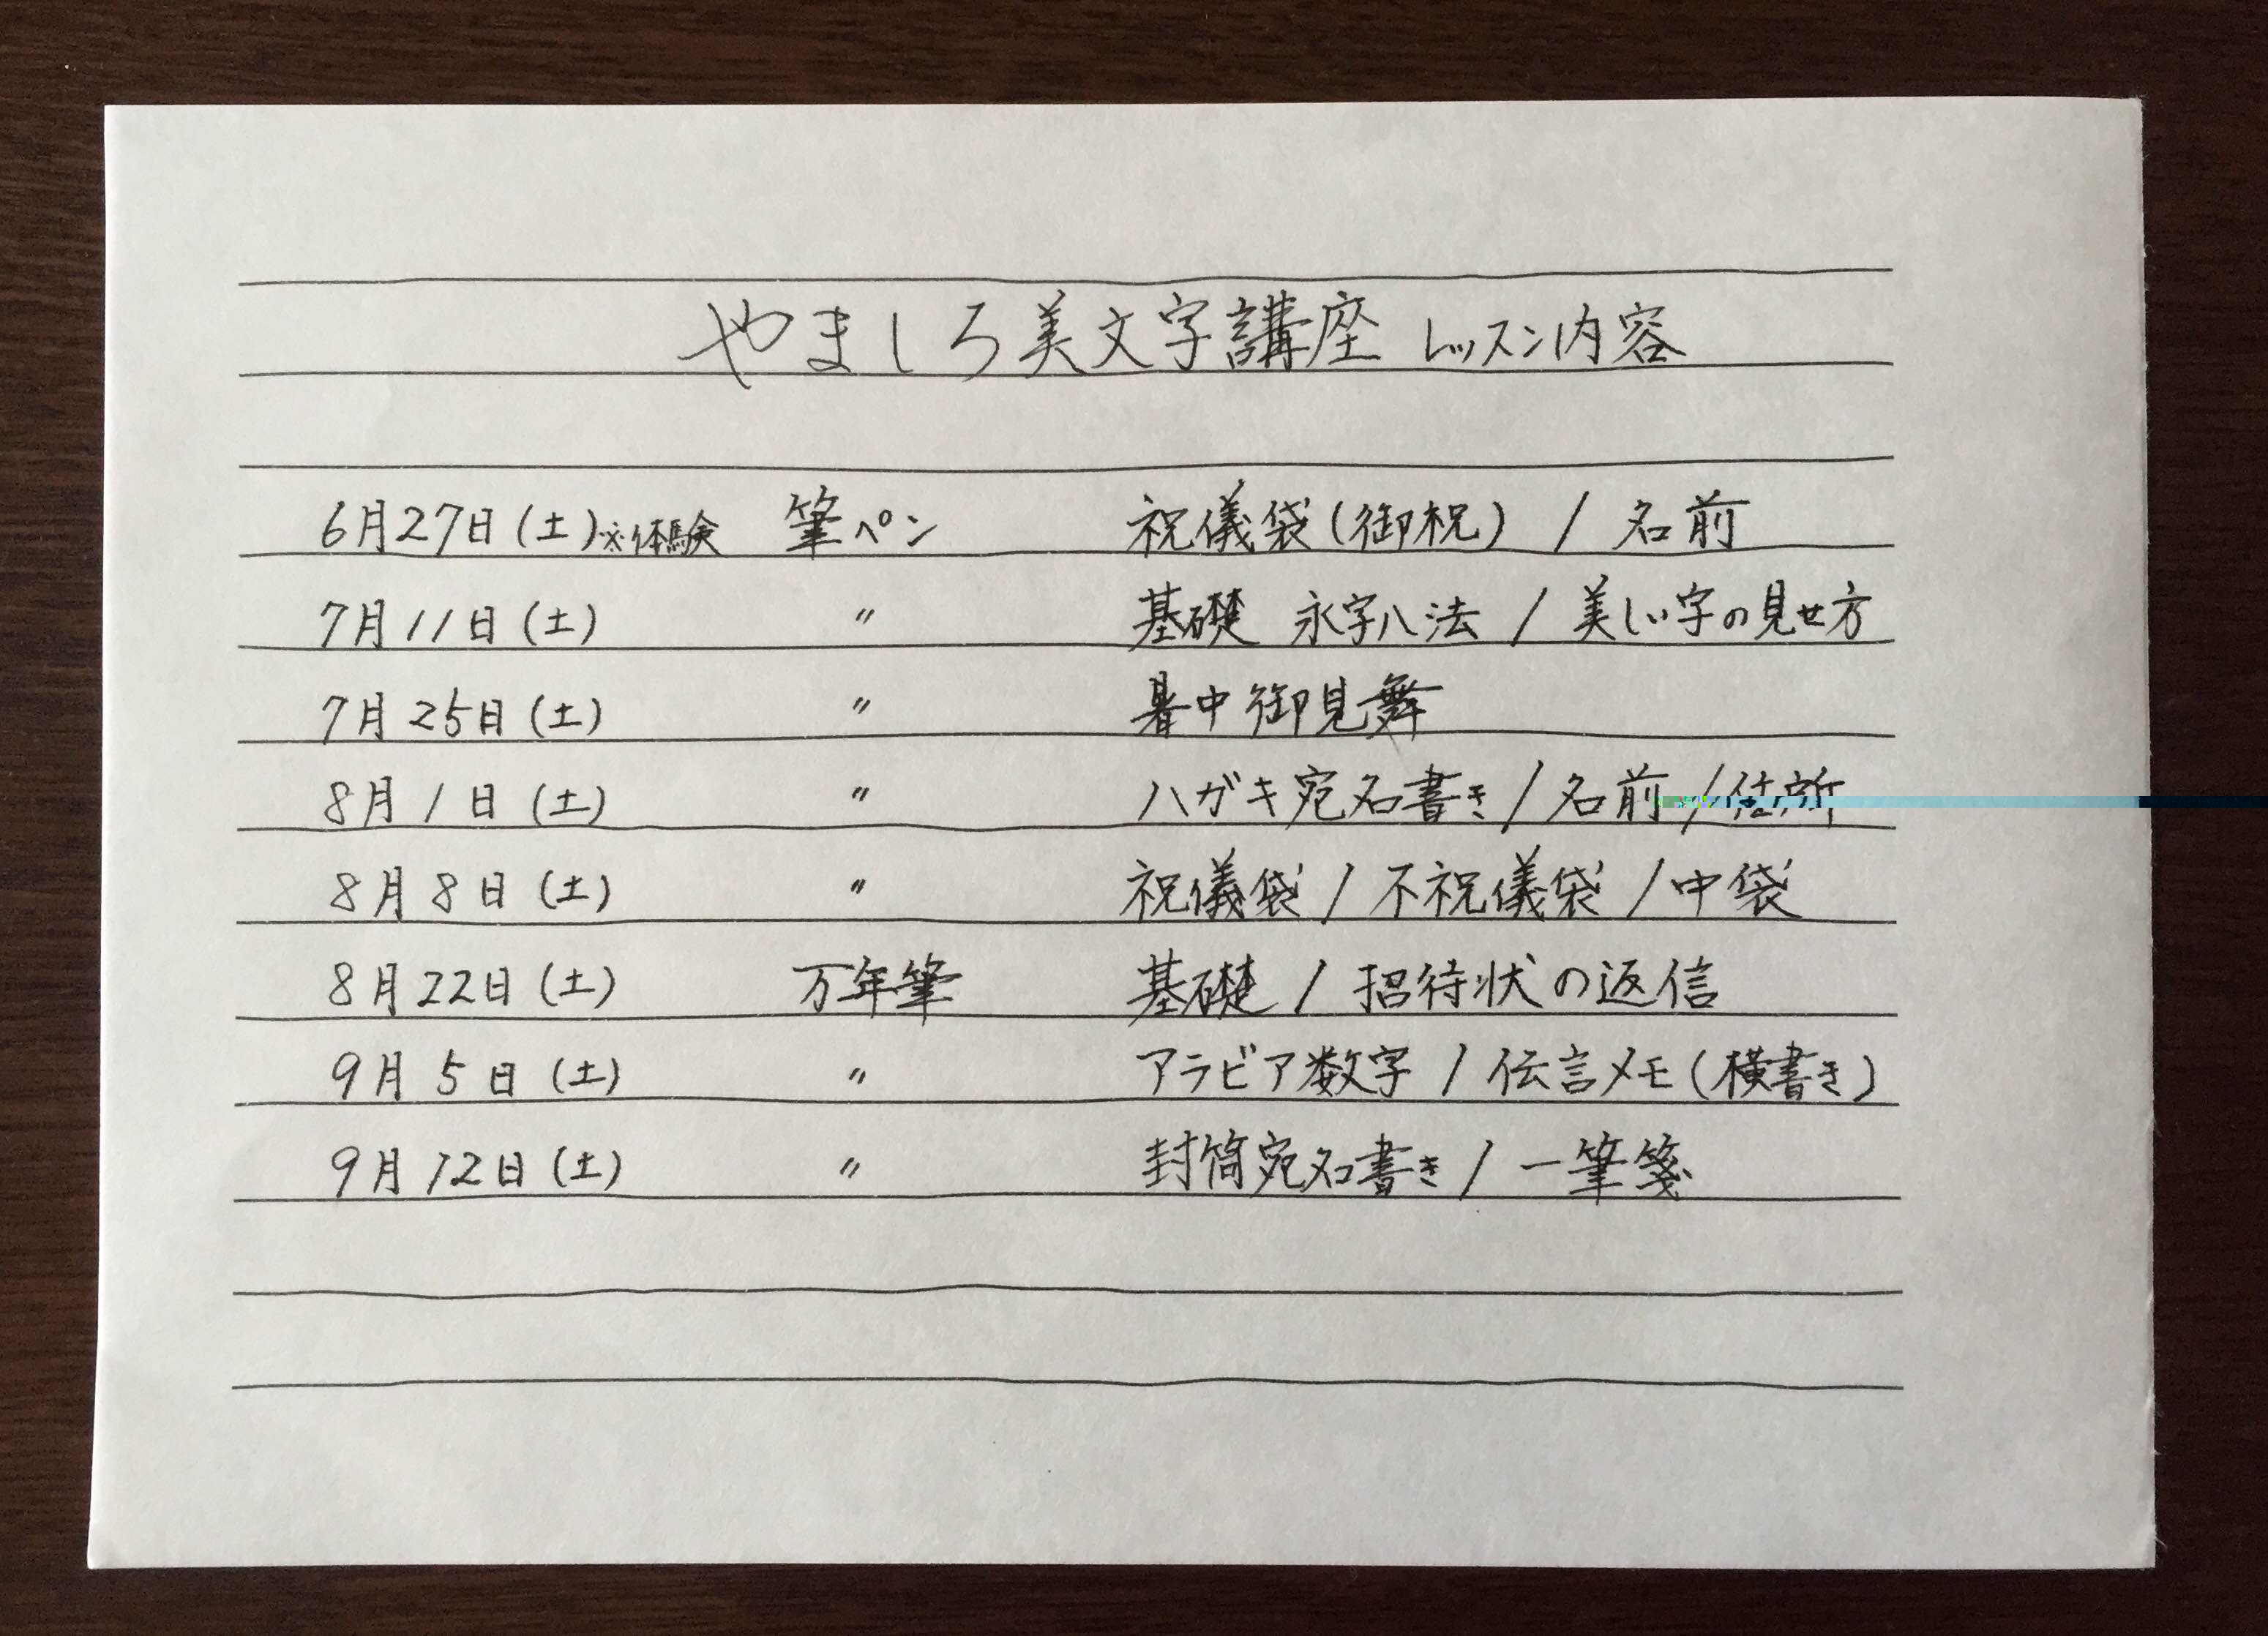 やましろ美文字講座 レッスン内容
6月27日(土)※体験 筆ペン 祝儀袋(御祝) / 名前
7月11日(土) 〃 基礎 永字八法 / 美しい字の見せ方
7月25日(土) 〃 暑中御見舞
8月1日(土) 〃 ハガキ宛名書き / 名前 / 住所
8月8日(土) 〃 祝儀袋 / 不祝儀袋 / 中袋
8月22日(土) 万年筆 基礎 / 招待状の返信
9月5日(土) 〃 アラビア数字 / 伝言メモ(横書き)
9月12日(土) 〃 封筒宛名書き / 一筆箋